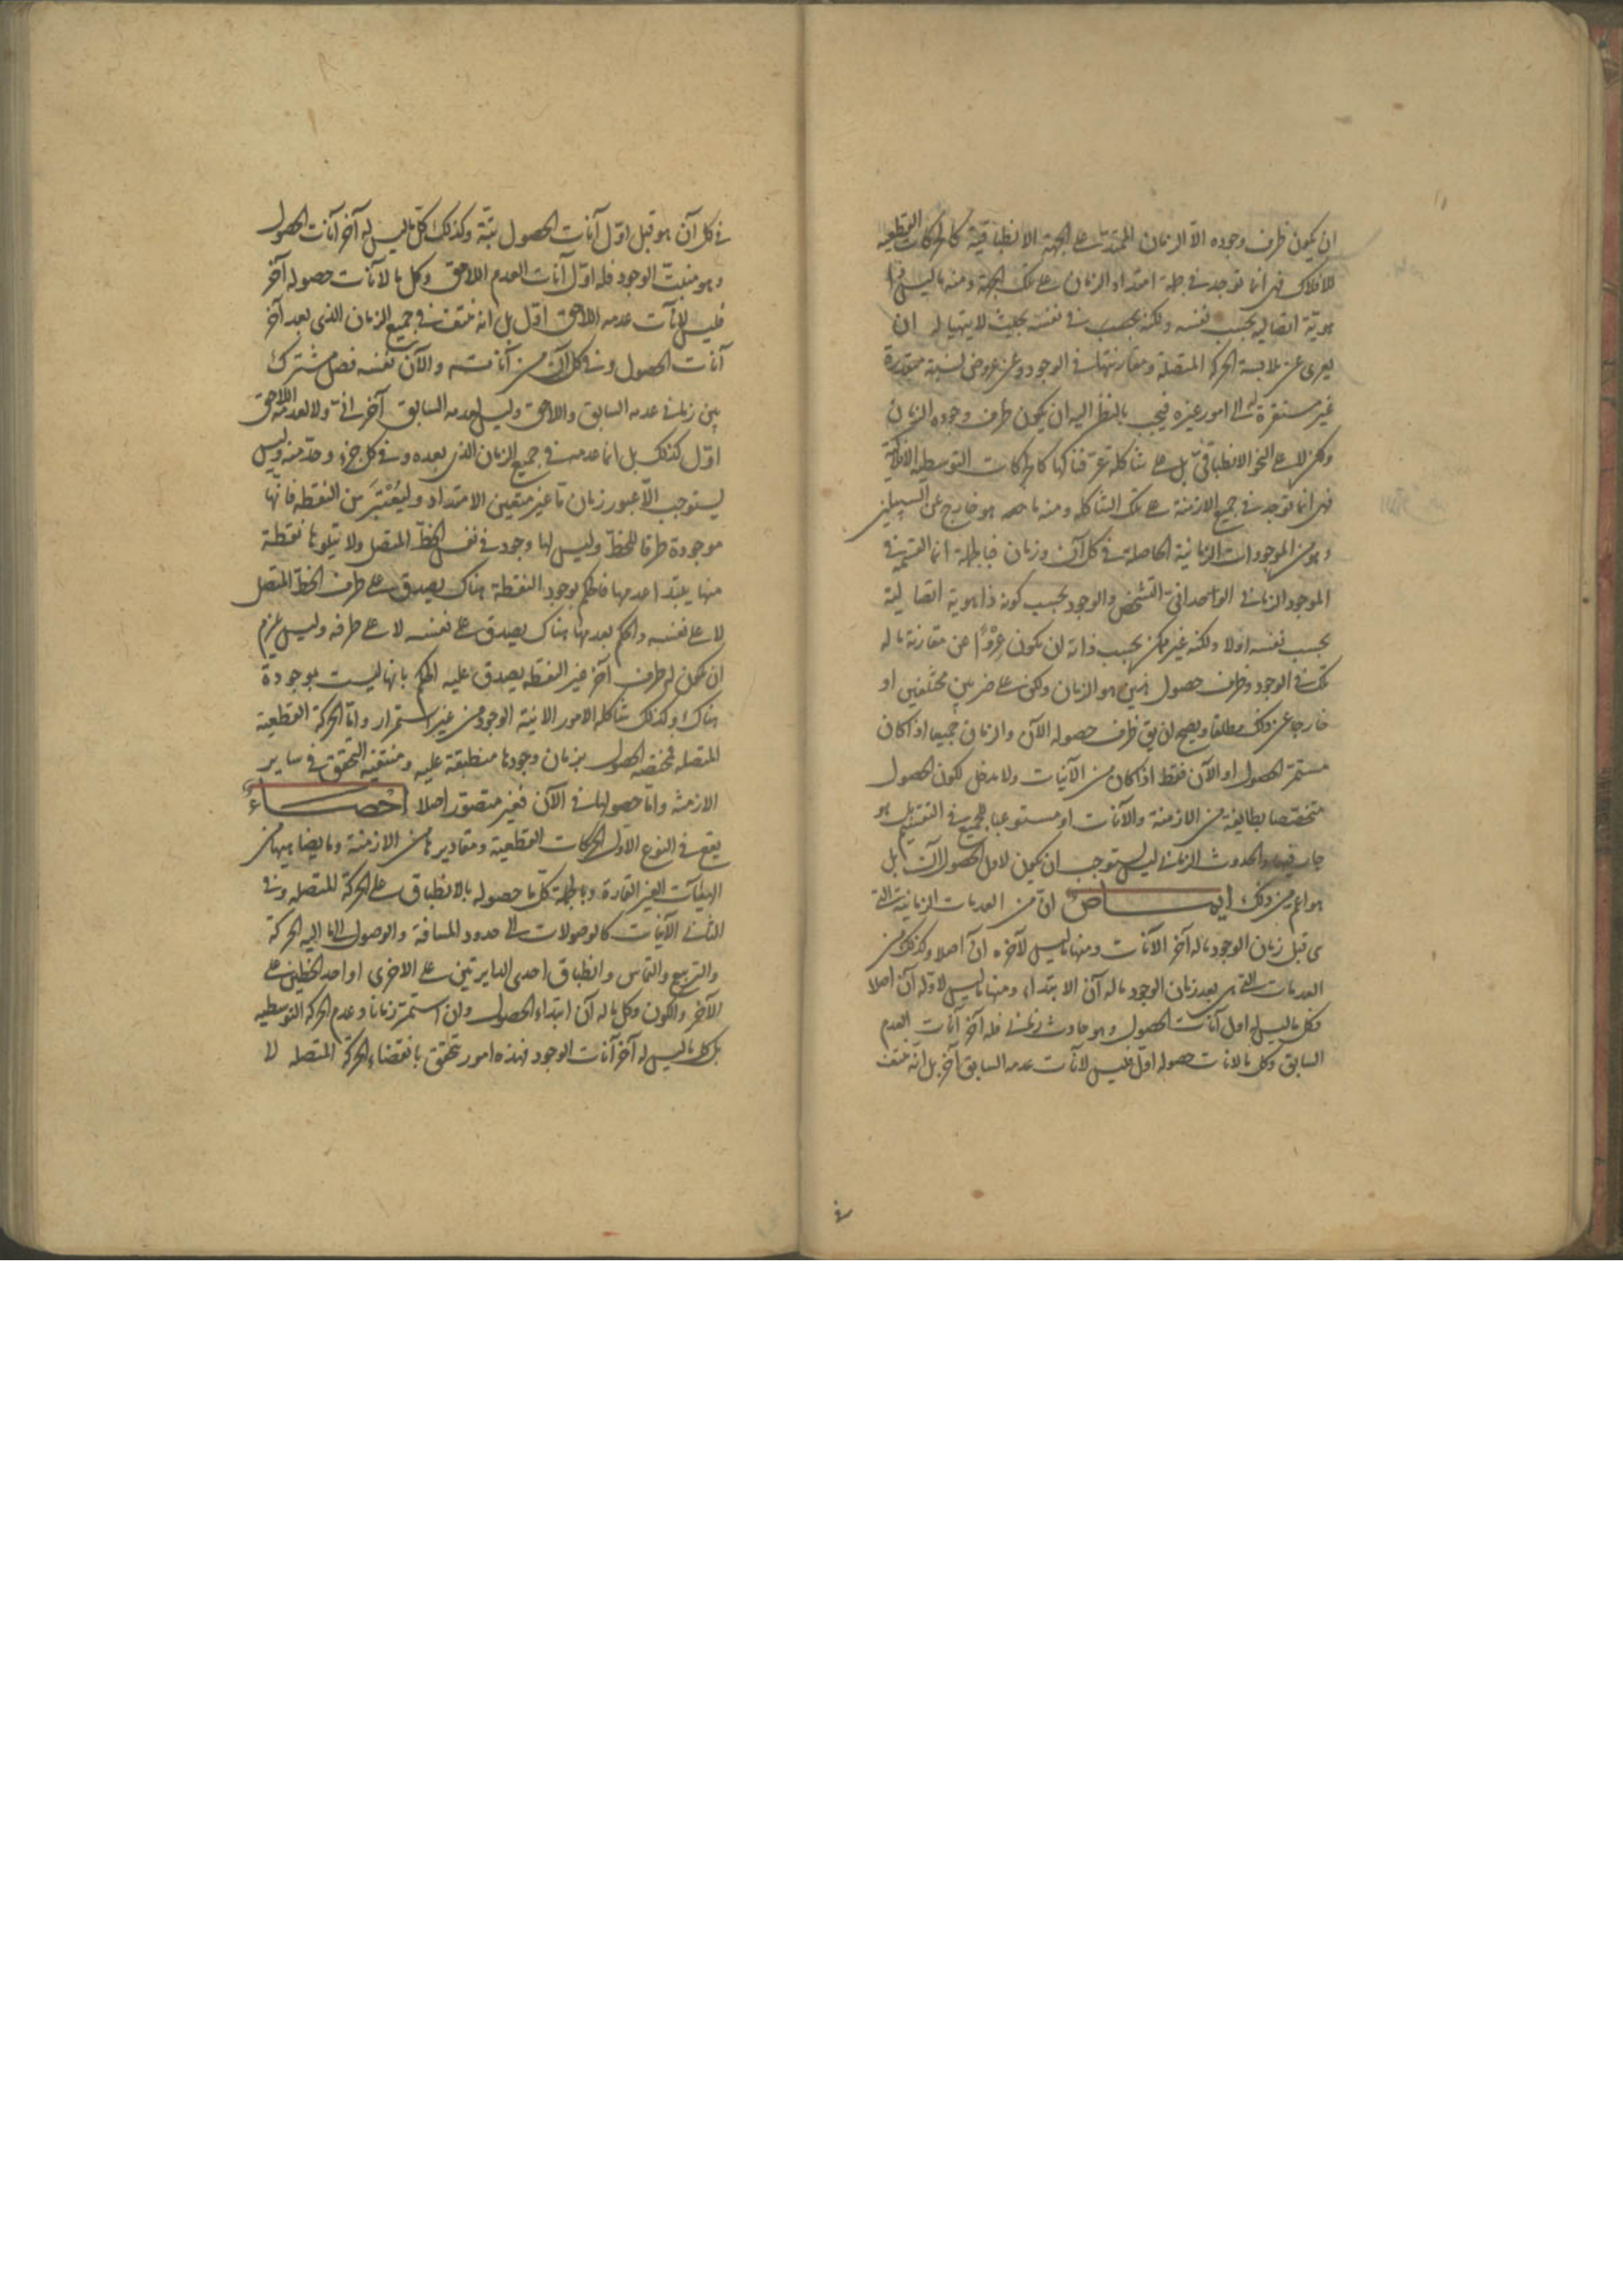 ان يكون ظرف وجوده الا الزمان الممتد على الجهة الانطباقية كالحركات القطعية
للافلاك فهى انما توجد فى جملة امتداد الزمان على تلك الجهة ومنه ما ليس فى
هويّة اتصاليه بحسب نفسه ولكنه بحسب فى نفسه بحيث لا يتهيا له ان
يعرى عن ملابسة الحركة المتصلة ومقارنتها فى الوجود وعن عروض نسبة متقدرة
غير مستقرة له الى امور غيره فيجب بالنظر اليه ان يكون ظرف وجوده الزمان
ولكن لا على النحو الانطباقىّ بل على شاكلة عرّفناكها كالحركات التوسطيه الافلاكية
فهى انما توجد فى جميع الازمنة على تلك الشاكله ومنه ما هو خارج عن السبيلين
وهو من الموجودات الزمانية الحاصلة فى كل آن وزمان فبالجملة انما القسمة فى
الموجود الزمانى الواحدانىّ التشخص والوجود بحسب كونه ذا هوية اتصالية
بحسب نفسه اولا ولكنه غير ممكن بحسب ذاته ان يكون عروًا عن مقارنة ما له
تلك فى الوجود وظرف حصول هذين هو الزمان ولكن على ضربين مختلفين او
خارجا عن ذلك مطلقا ويصح ان يق ظرف حصوله الآن والزمان جميعا اذا كان
مستمرّ الحصول او الآن فقط اذا كان من الآنيات ولا مدخل لكون الحصول
متخصّصا بطايفة من الازمنة والآنات او مستوعبا للجميع فى التقسيم بل هو
جار فيهما والحدوث الزمانى ليس يستوجب ان يكون لاول الحصول آن بل
هو اعم من ذلك ايماض ان من العدمات الزمانية التى
هى قبل زمان الوجود ما له آخر الآنات ومنها ما ليس لآخره آن اصلا وكذلك من
العدمات التى هى بعد زمان الوجود ما له آن الابتداء ومنها ما ليس لاوّله آن اصلا
فكل ما ليس له اول آنات الحصول وهو حادث زمانى فله آخر آنات العدم
السابق وكل ما لآنات حصوله اوّل فليس لآنات عدمه السابق آخر بل انّه منتف
فى كل آن هو قبل اوّل آنات الحصول بتّة وكذلك كلّ ما ليس له آخر آنات الحصول
وهو منبتّ الوجود فله اوّل آنات العدم اللاحق وكل ما لآنات حصوله آخر
فليس لآنات عدمه اللاحق اوّل بل انه منتف فى جميع الزمان الذى بعد آخر
آنات الحصول وفى كل آن من آناته والآن نفسه فصل مشترك
بين زمانى عدمه السابق واللاحق وليس لعدمه السابق آخر آنىّ ولا لعدمه اللاحق
اوّل كذلك بل انما عدمه فى جميع الزمان الذى بعده وفى كل جزء وحدّ منه وليس
يستوجب الّا عبور زمان ما غير متعين الامتداد وليُعْتبَر من النقطه فانّها
موجودة طرفا للخطّ وليس لها وجود فى نفس الخطّ المتصل ولا يتلوها نقطة
منها يبتدا عدمها فالحكم بوجود النقطة هناك يصدق على طرف الخطّ المتصل
لا على نفسه والحكم بعدمها هناك يصدق على نفسه لا على طرفه وليس يلزم
ان يكون له طرف آخر غير النقطه يصدق عليه الحكم بانها ليست بموجودة
هناك وكذلك شاكلة الامور الآنية الوجود من غير استمرار وامّا الحركة القطعية
المتصله فمختصة الحصول بزمان وجودها منطبقة عليه ومنتفية التحقق فى ساير
الازمنة وامّا حصولها فى الآن فغير متصوّر اصلا إحْصاءٌ
يقع فى النوع الاوّل الحركات القطعية ومقاديرها من الازمنة وما يضاهيها من
الهيئآت الغير القارة وبالجملة كلّ ما حصوله بالانطباق على الحركة المتصله وفى
الثانى الآنيات كالوصولات الى حدود المسافة والوصول الى ما اليه الحركة
والتربيع والتماس وانطباق احدى الدايرتين على الاخرى او احد الخطين على
الآخر والكون وكل ما له آن ابتداء الحصول وان استمرّ زمانا وعدم الحركة التوسطيه
بل كل ما ليس له آخر آنات الوجود فهذه امور تتحقق بانقضاء الحركة المتصله لا